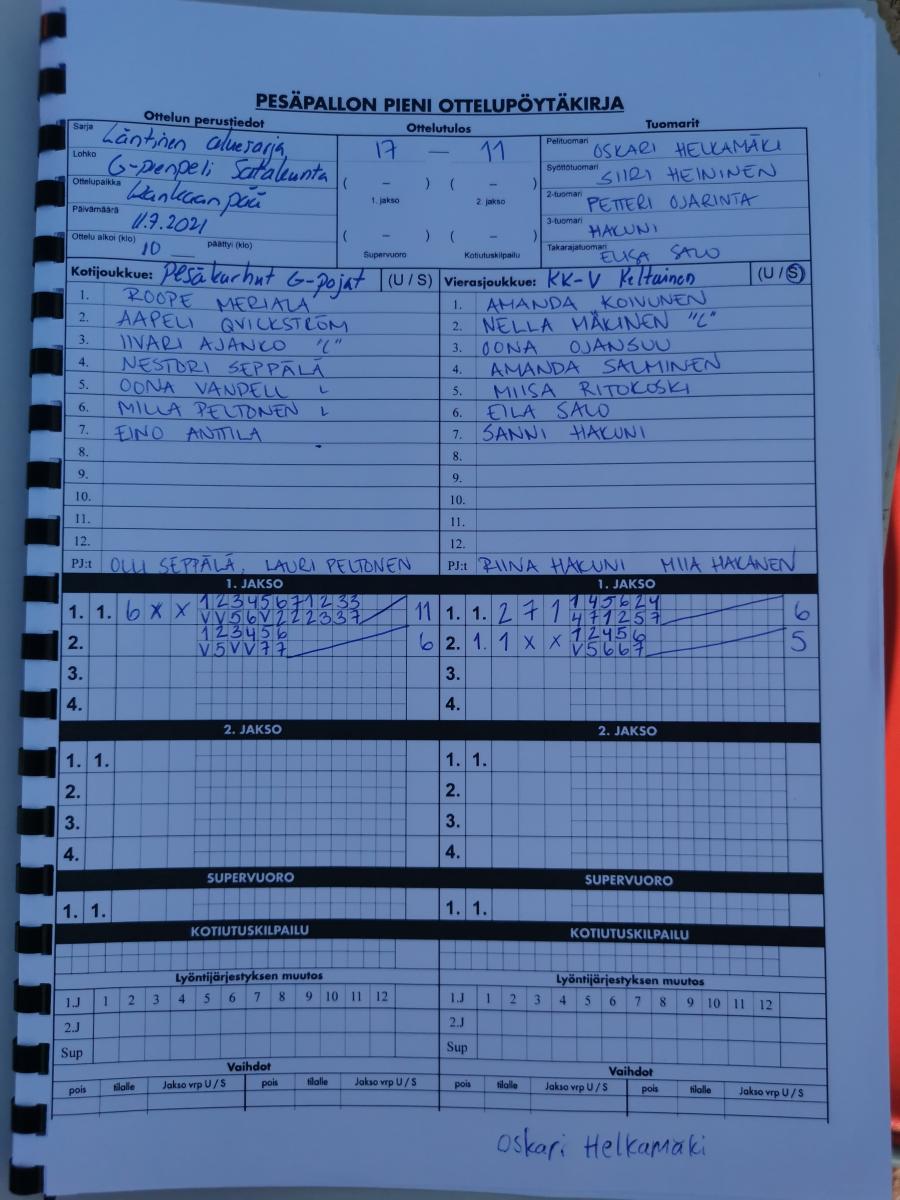 PESÄPALLON PIENI OTTELUPÖYTÄKIRJA
Ottelun perustiedot
Ottelutulos
Tuomarit
Sarja Läntinen aluesarja
Lohko G-pienpeli Satakunta
Ottelupaikka Kankaanpää
Päivämäärä 11.7.2021
Ottelu alkoi (klo) 10 päättyi (klo)
17 — 11
( – ) ( – )
1. jakso 2. jakso
( – ) ( – )
Supervuoro Kotiutuskilpailu
Pelituomari OSKARI HELKAMÄKI
Syöttötuomari SIIRI HEININEN
2-tuomari PETTERI OJARINTA
3-tuomari HAKUNI
Takarajatuomari ELISA SALO
Kotijoukkue: Pesäkarhut G-pojat (U / S)
1. ROOPE MERIALA
2. AAPELI QVICKSTRÖM
3. IIVARI AJANKO "C"
4. NESTORI SEPPÄLÄ
5. OONA VANDELL L
6. MILLA PELTONEN L
7. EINO ANTTILA
8.
9.
10.
11.
12.
PJ:t OLLI SEPPÄLÄ, LAURI PELTONEN
Vierasjoukkue: KK-V Keltainen (U / S)
1. AMANDA KOIVUNEN
2. NELLA MÄKINEN "C"
3. OONA OJANSUU
4. AMANDA SALMINEN
5. MIISA RITOKOSKI
6. EILA SALO
7. SANNI HAKUNI
8.
9.
10.
11.
12.
PJ:t RIINA HAKUNI MIIA HAKANEN
1. JAKSO
1. 1. 6 X X 12345671233 11
VV56V222337
2. 123456 6
V5VV77
3.
4.
1. JAKSO
1. 1. 2 7 1 145624 6
471257
2. 1. 1 X X 12456 5
V5667
3.
4.
2. JAKSO
1. 1.
2.
3.
4.
2. JAKSO
1. 1.
2.
3.
4.
SUPERVUORO
1. 1.
SUPERVUORO
1. 1.
KOTIUTUSKILPAILU
KOTIUTUSKILPAILU
Lyöntijärjestyksen muutos
1.J 1 2 3 4 5 6 7 8 9 10 11 12
2.J
Sup
Lyöntijärjestyksen muutos
1.J 1 2 3 4 5 6 7 8 9 10 11 12
2.J
Sup
Vaihdot
pois tilalle Jakso vrp U / S pois tilalle Jakso vrp U / S
Vaihdot
pois tilalle Jakso vrp U / S pois tilalle Jakso vrp U / S
Oskari Helkamäki